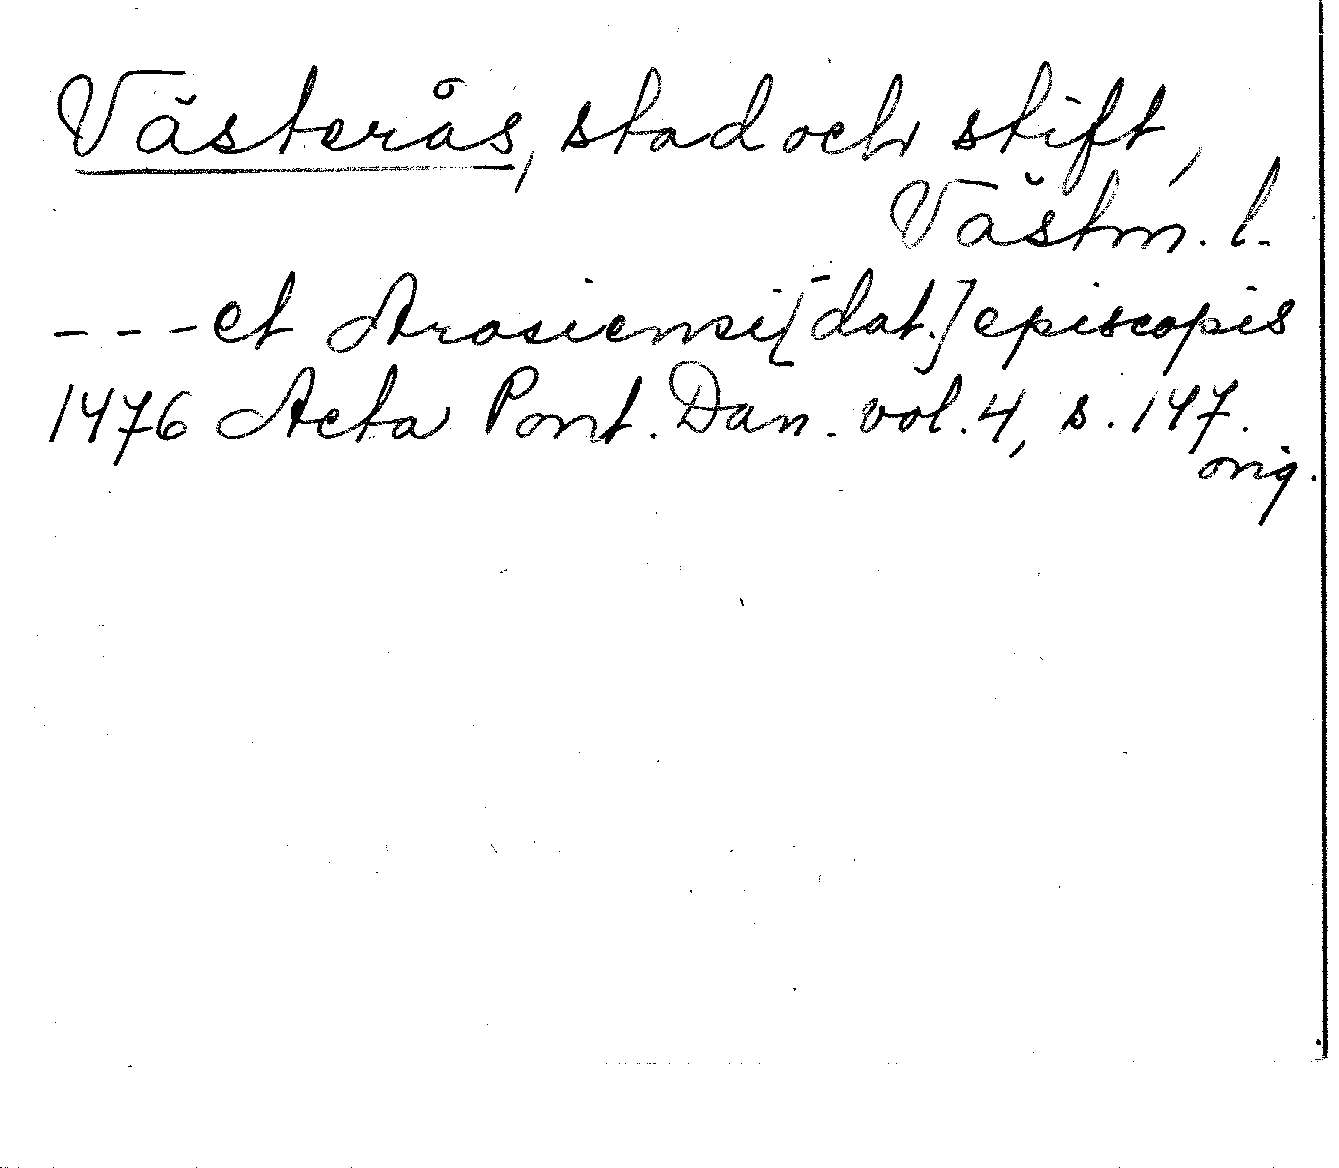 Västerås, stad och stift,
Västm. l.
--- et Arosiensi [dat.] episcopis
1476 Acta Pont. Dan. vol. 4, s. 147.
orig.